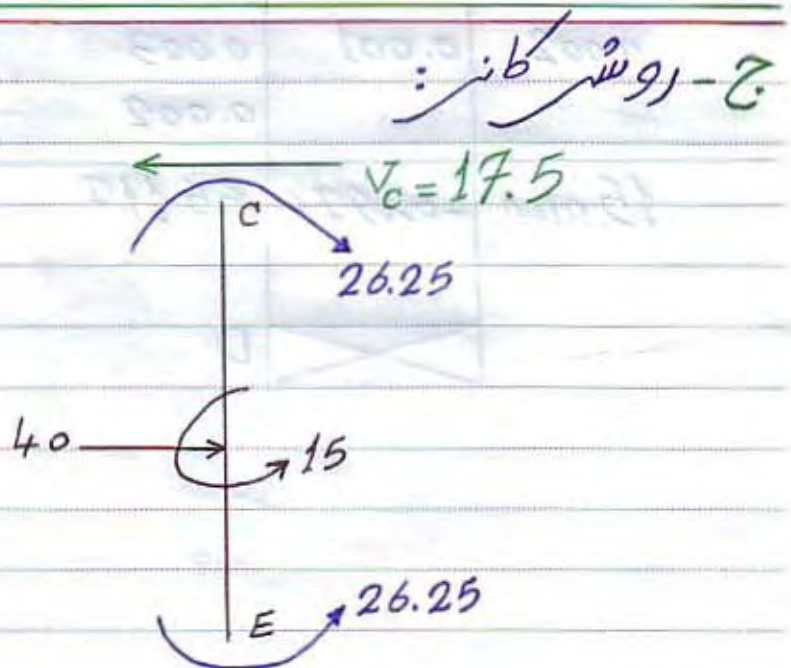 ج - روش کانی :
V_c = 17.5
C
26.25
40
15
26.25
E